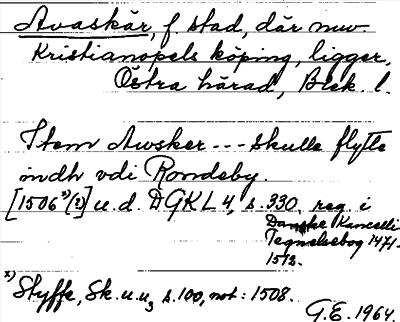 Avaskär, f stad, där nuv.
Kristianopels köping, ligger,
Östra härad, Blek. l.
Item Awsker --- skulle flytte
indh vdi Romdeby.
[1506ˣ⁾/(2)] u.d. DGKL 4, s. 330, reg i
Danske Kancelli
Tegnelsebog 1471-
1513.
x) Styffe, Sk. u. u₃ s. 100, not: 1508.
G.E. 1964.